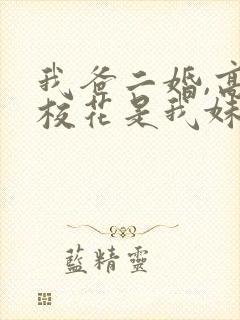 我爸二婚,高
校花是我妹
藍精靈